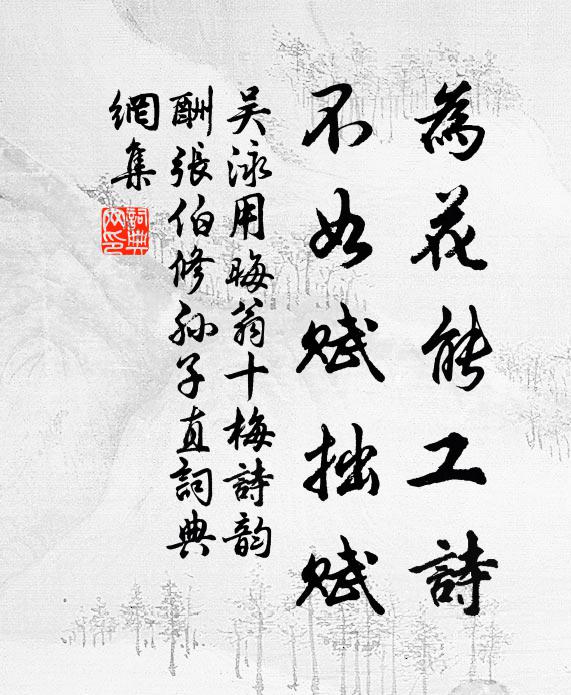 為花能工詩
不如賦拙賦
吴泳用晦翁十梅詩韵
酬張伯修孙子直詞典
網集
詞典
网印